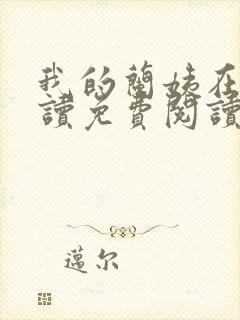 我的蘭姨在
讀免費閱讀
邁尔